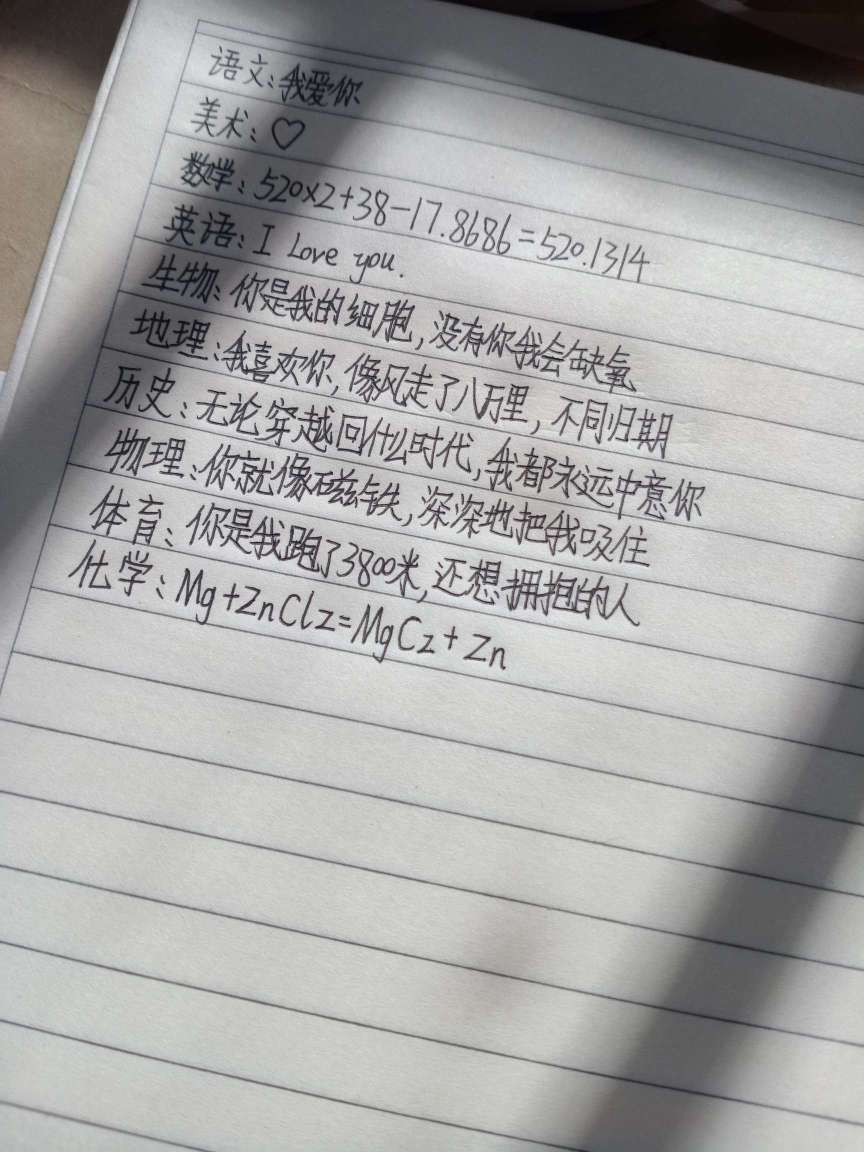 语文：我爱你
美术：♡
数学：520×2+38-17.8686=520.1314
英语：I Love you.
生物：你是我的细胞，没有你我会缺氧
地理：我喜欢你，像风走了八万里，不同归期
历史：无论穿越回什么时代，我都永远中意你
物理：你就像磁铁，深深地把我吸住
体育：你是我跑了3800米，还想拥抱的人
化学：Mg+ZnCl2=MgC2+Zn